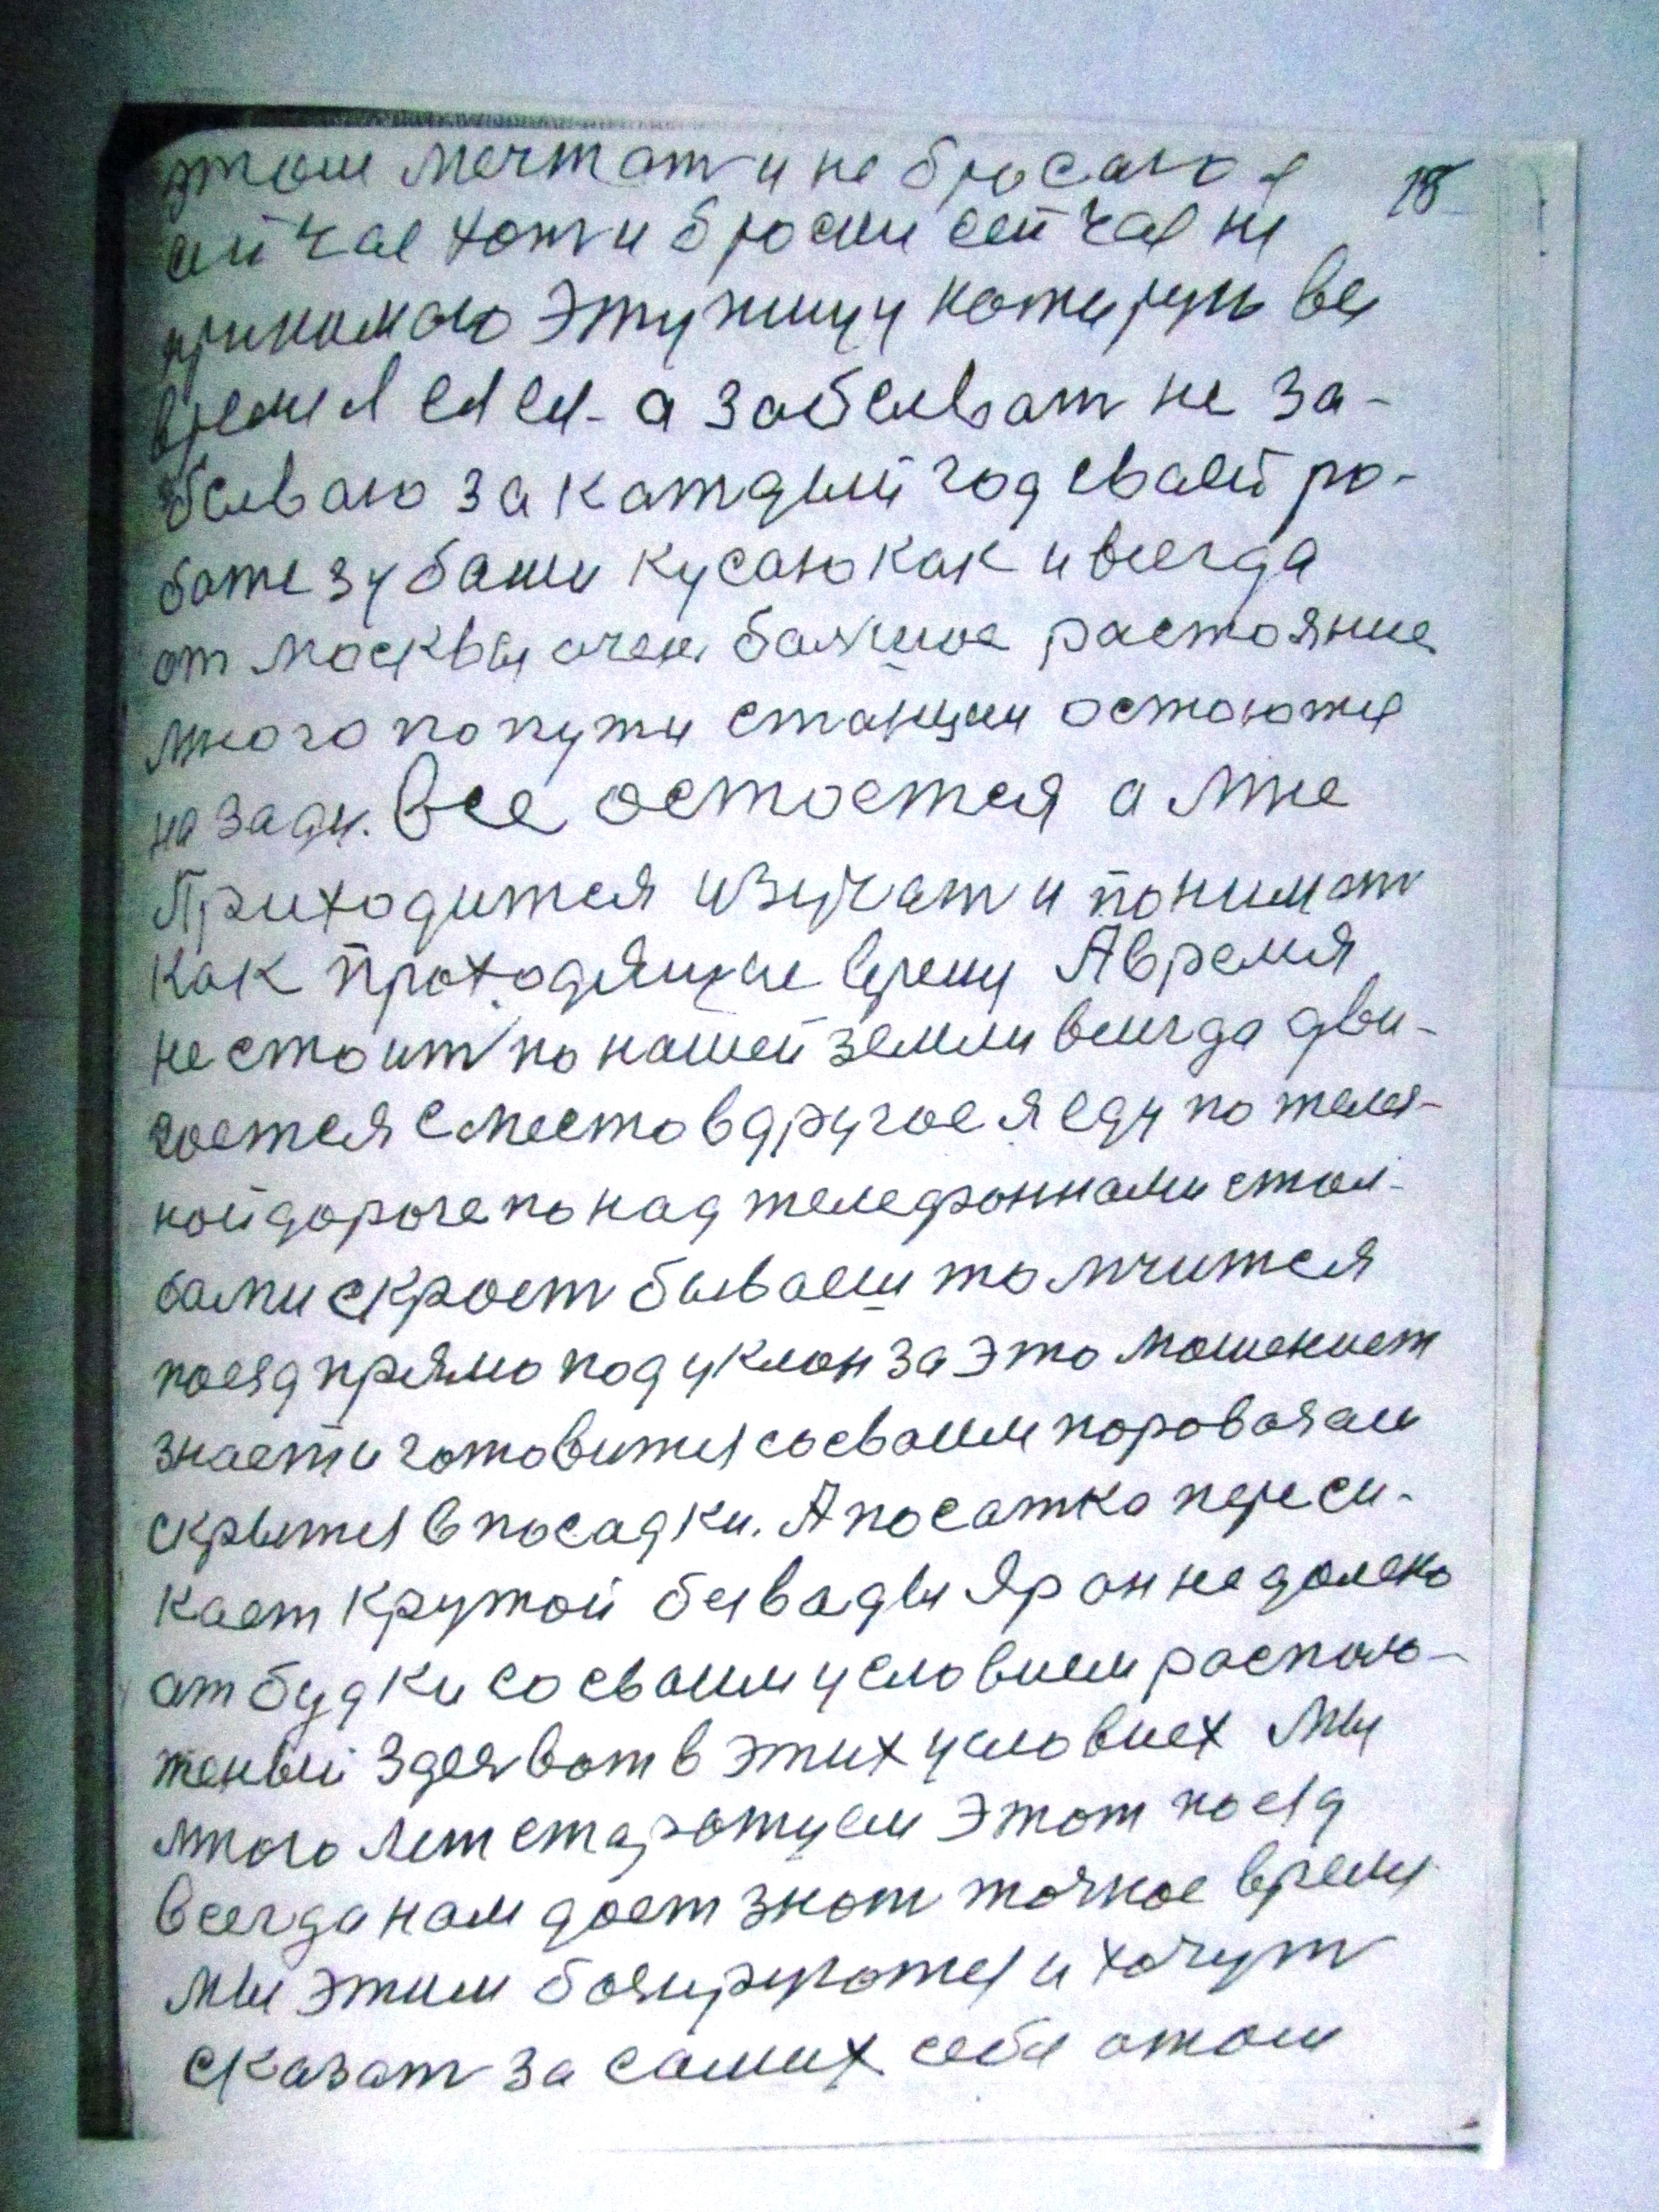 этом мечтат и не бросаю я 18
сейчас хоть и бросил сейчас не
принимаю эту пищу которую все
время ел ел - а забыват не за-
бываю за каждый год своей ро-
боте зубами кусаю как и всегда
от москвы очен большое растояние
много по пути станции остаются
на зади. Все остается а мне
Приходится изучат и понимат
как проходящие время А время
не стоит по нашей земли всегда дви-
гается с место в другое я еду по желез-
ной дороге по над телефонными стол-
бами скрост бываеш то мчится
поезд прямо под уклон за это мошенист
знает и готовится со своим паровозам
скрытся в посадки. А посатка переси-
кает крутой бывады Яр он не далеко
от будки со своим условием располо-
женый здесь вот в этих условиех Мы
много лет старожуем этот поезд
всегда нам дает знат точное время
мы этим базируются и хочут
сказат за самих себя отом